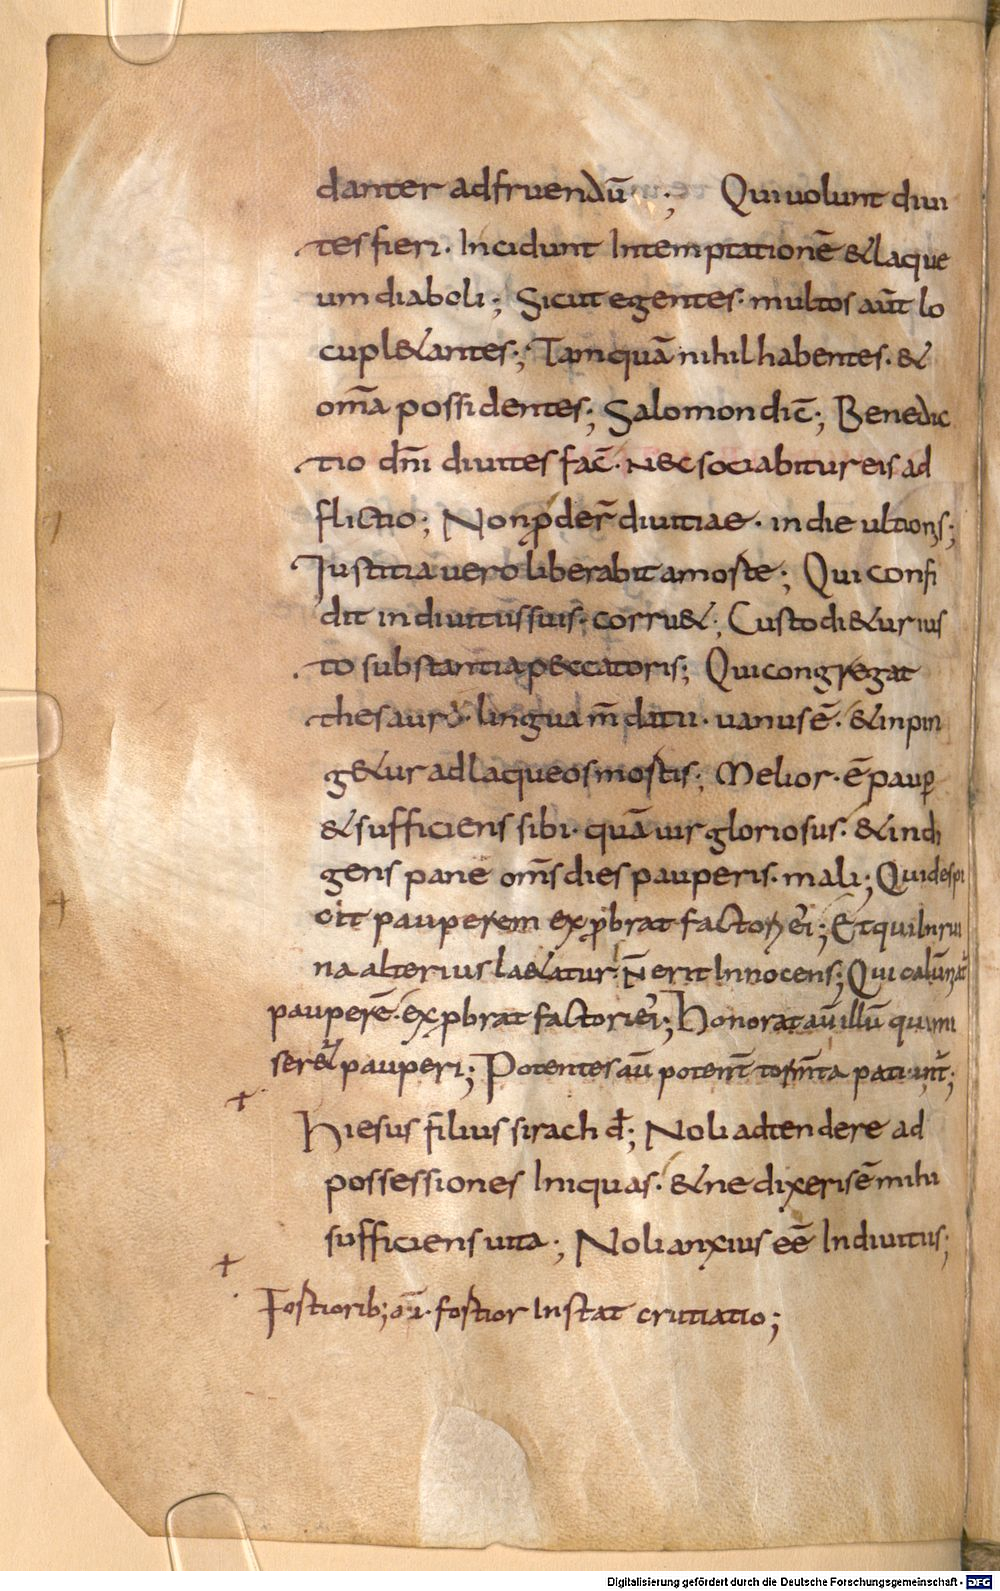 danter adfruendū ·; Qui uolunt diui
tes fieri · Incidunt Intemptationē & laque
um diaboli; Sicut egentes · multos aūt lo
cupl&antes·; Tamquā nihil habentes · &
om̄a possidentes; Salomon dic̄; Benedic
tio dn̄i diuites fac̄ · nec sociabitur eis ad
flictio; Non ꝓder̄ diuitiae · in die ultionis;
Iustitia uero liberabit a morte; Qui confi
dit in diuitiis suis · corru&; Custodi&ur ius
to substantia peccatoris; Qui congregat
thesaurū · lingua m̄datii · uanus ē · & inpin
g&ur ad laqueos mortis; Melior · ē paup
& sufficiens sibi · quā uir gloriosus · & indi
gens pane om̄s dies pauperis · mali; Qui despi
cit pauperem exꝓbrat factori ei; Et qui In rui
na alterius la&atur · n̄ erit Innocens; Qui calūniat̄
pauperē · exꝓbrat factori ei; Honorat aū illū qui mi
ser&ur pauperi; Potentes aū potent̄ torm̄ta patiunt̄;
Hiesus filius sirach d̄; Noli adtendere ad
possessiones Iniquas · & ne dixeris ē mihi
sufficiens uita; Noli anxius eē In diuitiis;
Fortiorib; aū · fortior Instat crutiatio;
Digitalisierung gefördert durch die Deutsche Forschungsgemeinschaft - DFG